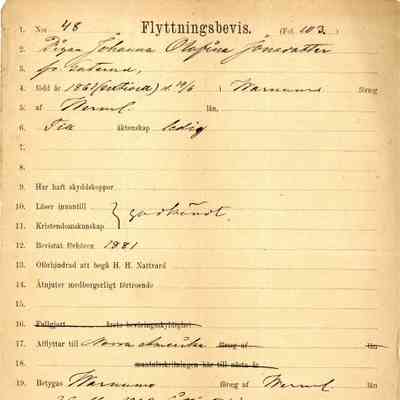 1. N:o 48 Flyttningsbevis. (Fol. 103)
2. Pigan Johanna Olofina Jonsdotter
3. fr.
4. född år 1861 d. 19/6 i Warnums försg
5. af Werml. län.
6. Till äktenskap ledig
7.
8.
9. Har haft skyddskoppor
10. Läser innantill
11. Kristendomskunskap godkändt.
12. Bevistat förhören 1881
13. Oförhindrad att begå H. H. Nattvard
14. Åtnjuter medborgerligt förtroende
15.
16. Fullgjort årets beväringsskyldighet
17. Afflyttar till Norra Amerika försg af län
18. mantalsskrifningen här till nästa år
19. Betygas Warnums försg af Werml. län